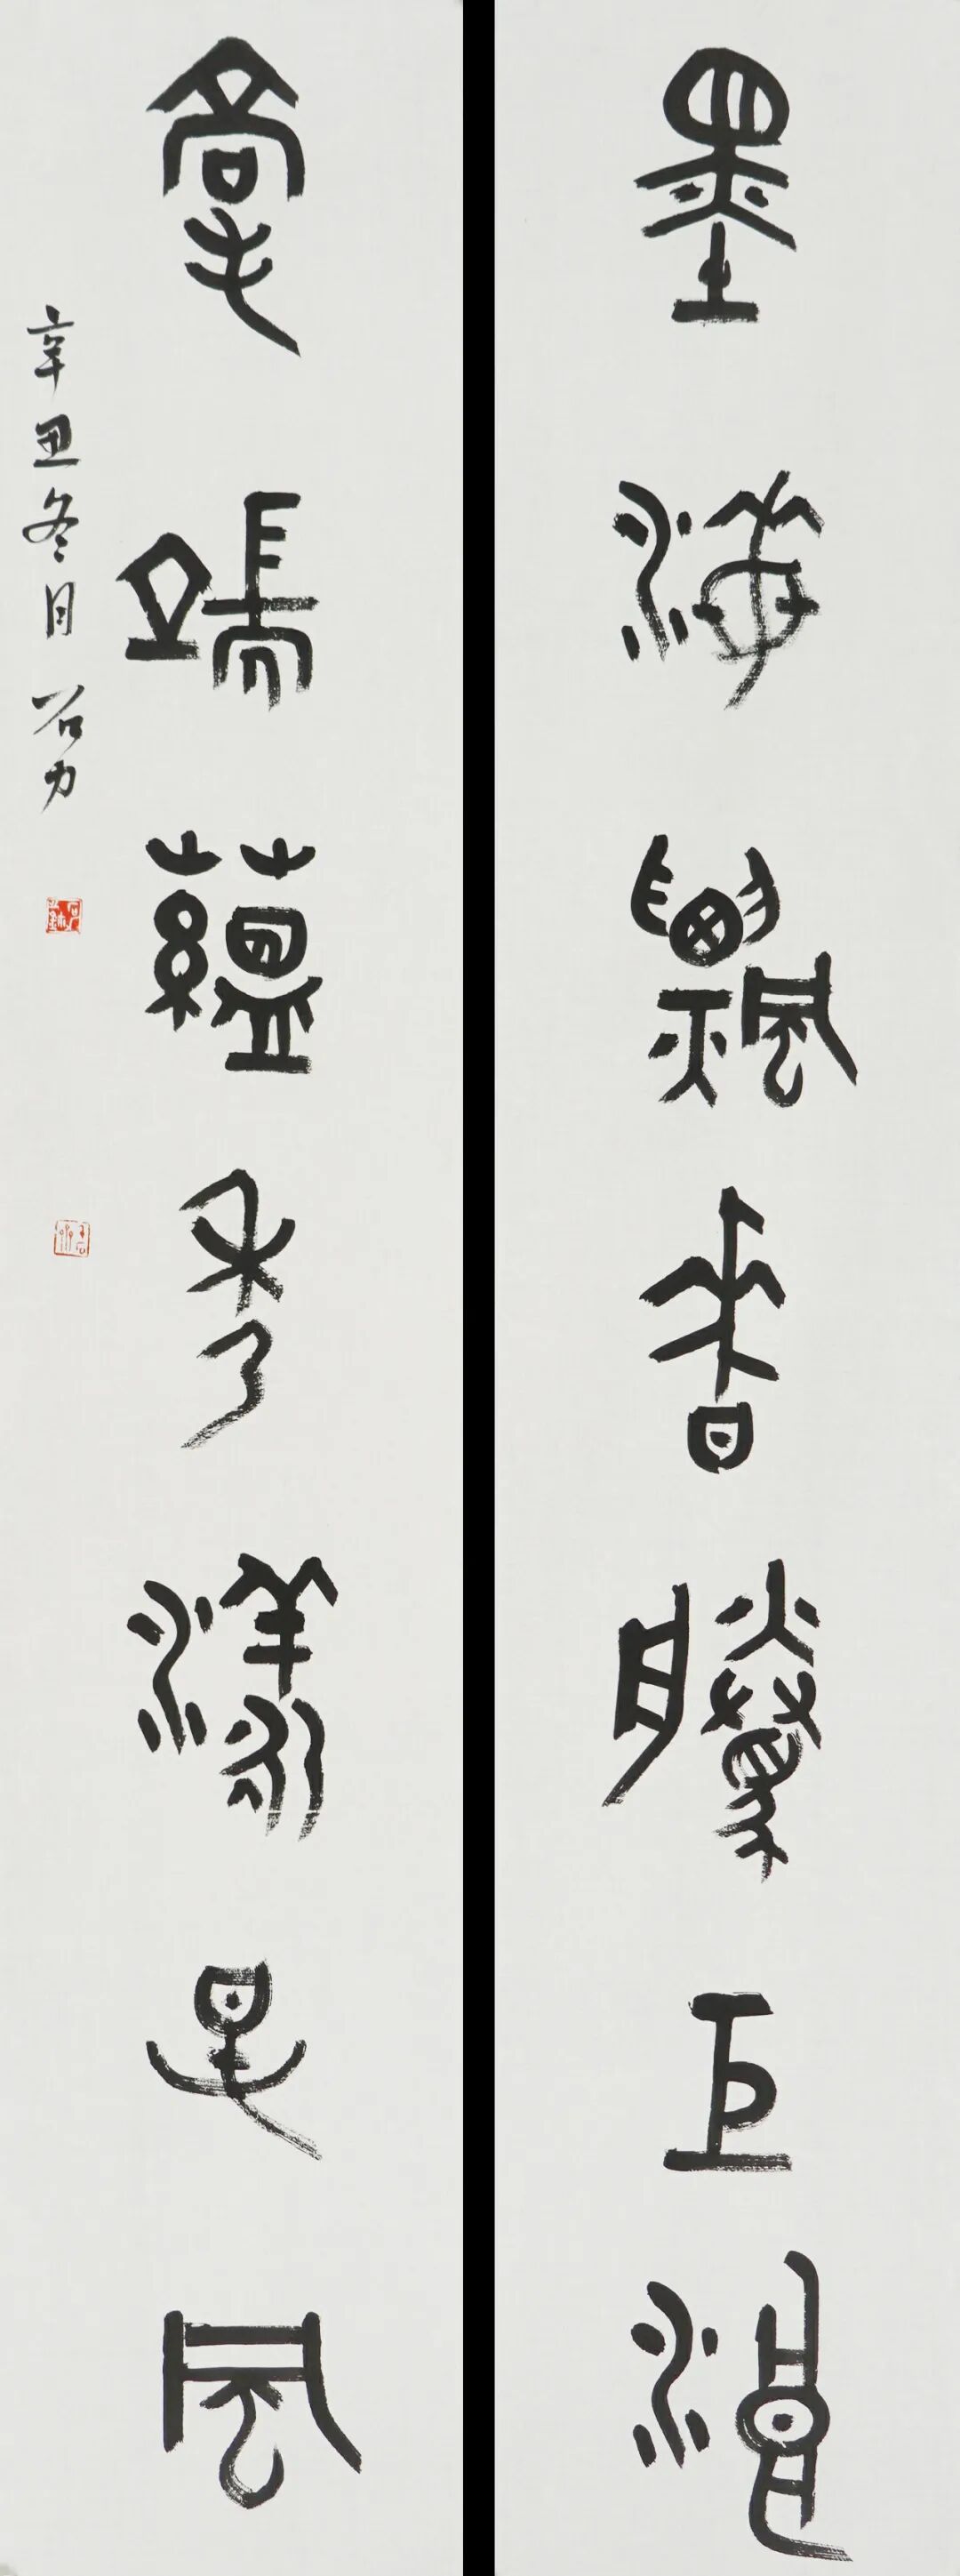 墨海飄香騰巨浪
毫端蘊秀漾春風
辛丑冬月